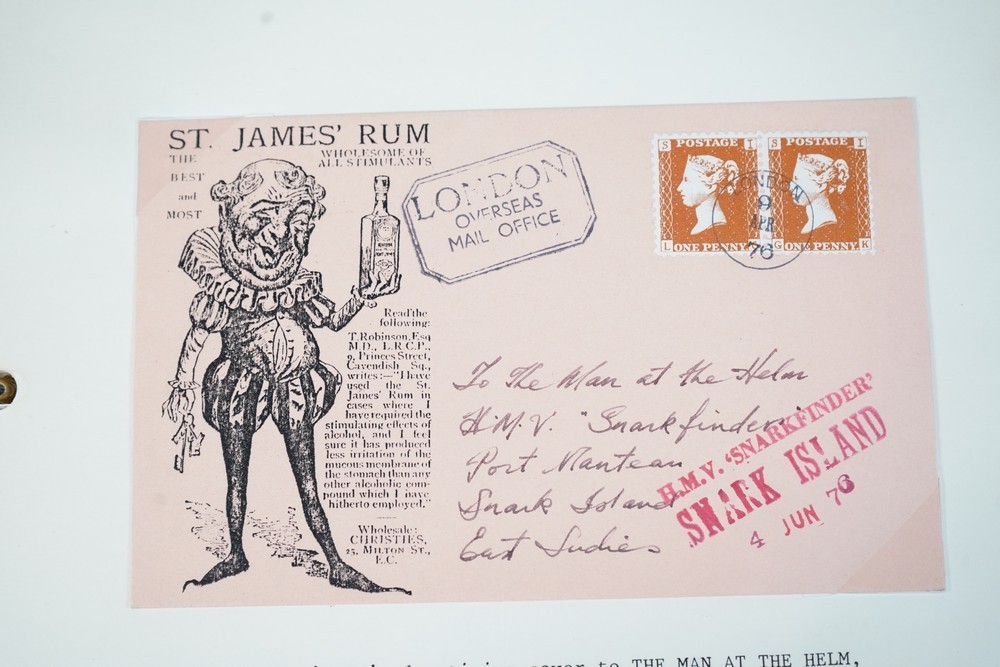 ST. JAMES' RUM
THE
BEST
and
MOST
WHOLESOME OF
ALL STIMULANTS
Read the
following:
T. Robinson, Esq
M.D., L.R.C.P.,
9, Princes Street,
Cavendish Sq.,
writes:—"I have
used the St.
James' Rum in
cases where I
have required the
stimulating effects of
alcohol, and I feel
sure it has produced
less irritation of the
mucous membrane of
the stomach than any
other alcoholic com-
pound which I have
hitherto employed."
Wholesale:
CHRISTIES,
25, MILTON ST.,
E.C.
LONDON
OVERSEAS
MAIL OFFICE
S POSTAGE I
L ONE PENNY
S POSTAGE I
G ONE PENNY. K
LONDON
9
APR
76
To The Man at the Helm
H.M.V. "Snarkfinder"
Port Manteau
Snark Island
East Indies
H.M.V. 'SNARKFINDER'
SNARK ISLAND
4 JUN 76
cover to THE MAN AT THE HELM,